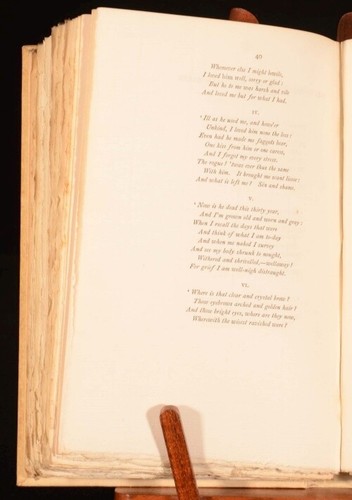 40
Whomever else I might beguile,
I loved him well, sorry or glad:
But he to me was harsh and vile
And loved me but for what I had.
IV.
‘Ill as he used me, and howe'er
Unkind, I loved him none the less:
Even had he made me faggots bear,
One kiss from him or one caress,
And I forgot my every stress.
The rogue! 'twas ever thus the same
With him. It brought me scant liesse:
And what is left me? Sin and shame.
V.
‘Now is he dead this thirty year,
And I'm grown old and worn and grey:
When I recall the days that were
And think of what I am to-day
And when me naked I survey
And see my body shrunk to nought,
Withered and shrivelled,—wellaway!
For grief I am well-nigh distraught.
VI.
‘Where is that clear and crystal brow?
Those eyebrows arched and golden hair?
And those bright eyes, where are they now,
Wherewith the wisest ravished were?